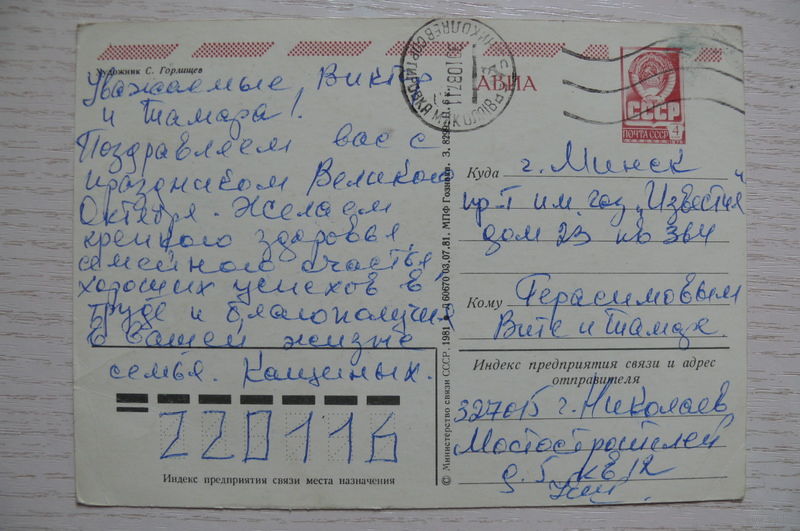 Художник С. Горлищев
Уважаемые, Виктор
и Тамара!
Поздравляем вас с
праздником Великого
Октября. Желаем
крепкого здоровья,
семейного счастья,
хороших успехов в
труде и благополучия
в вашей жизни
семья. Кащиных.
220116
Индекс предприятия связи места назначения
© Министерство связи СССР, 1981 60670 03.07.81. МПФ Гознака. З.
АВИА
СССР
ПОЧТА СССР
4
НИКОЛАЕВ СОРТИРОВКА
Куда г. Минск
пр-т им. газ „Известия"
дом 23 кв 364
Кому Герасимовым
Вите и Тамаре
Индекс предприятия связи и адрес
отправителя
327015 г. Николаев
Мостостроителей
д. 5 кв 12